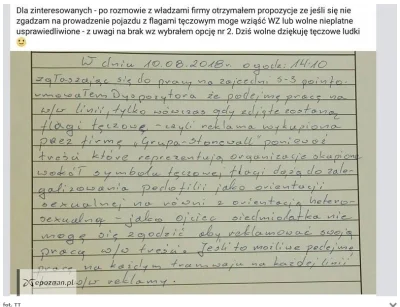 Dla zinteresowanych - po rozmowie z władzami firmy otrzymałem propozycje ze jeśli się nie
zgadzam na prowadzenie pojazdu z flagami tęczowym moge wziąść WZ lub wolne niepłatne
usprawiedliwione - z uwagi na brak wz wybrałem opcję nr 2. Dziś wolne dziękuję tęczowe ludki
W dniu 10.08.2018r o godz: 14:10
zgłaszając się do pracy na zajezdni S-3 poinfor-
mowałem Dyspozytora że podejmę pracę na
w/w linii, tylko wówczas gdy zdjęte zostaną
flagi tęczowe - czyli reklama wykupiona
przez firmę "Grupa-Stonewall" ponieważ
treści które reprezentują organizacje skupione
wokół symbolu tęczowej flagi dążą do zale-
galizowania pedofilii jako orientacji
seksualnej na równi z orientacją hetero-
seksualną - jako ojciec siedmiolatka nie
mogę się zgodzić aby reklamować swoją
pracą w/w treści. Jeśli to możliwe podejmę
pracę na każdym tramwaju na każdej linii
w/w reklamy.
epoznan.pl
fot. TT